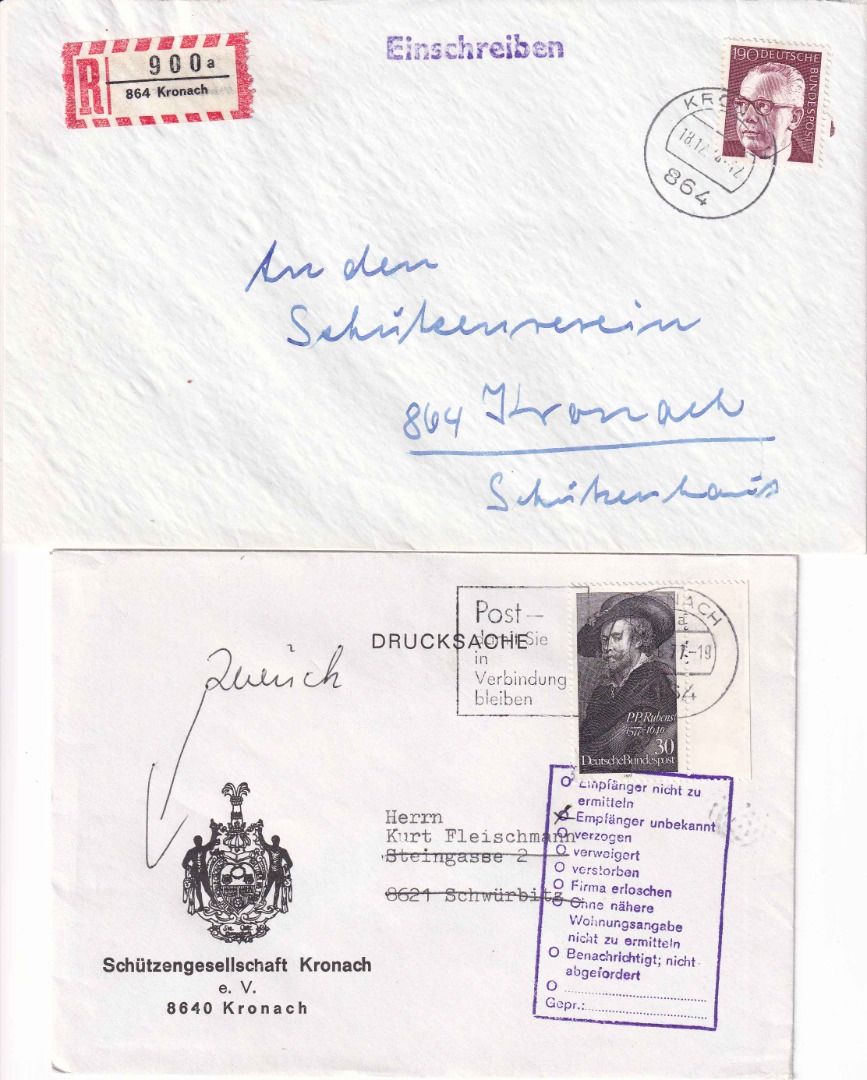 R
900a
864 Kronach
Einschreiben
190 DEUTSCHE
BUNDESPOST
864
An den
Schützenverein
864 Kronach
Schützenhaus
Post –
damit Sie
in
Verbindung
bleiben
DRUCKSACHE
NACH
a
77-19
P.P. Rubens
30
Deutsche Bundespost
zurück
Herrn
Kurt Fleischmann
Steingasse 2
8621 Schwürbitz
Schützengesellschaft Kronach
e. V.
8640 Kronach
O Empfänger nicht zu
ermitteln
O Empfänger unbekannt
O verzogen
O verweigert
O verstorben
O Firma erloschen
O Ohne nähere
Wohnungsangabe
nicht zu ermitteln
O Benachrichtigt; nicht
abgefordert
O
Gepr.: